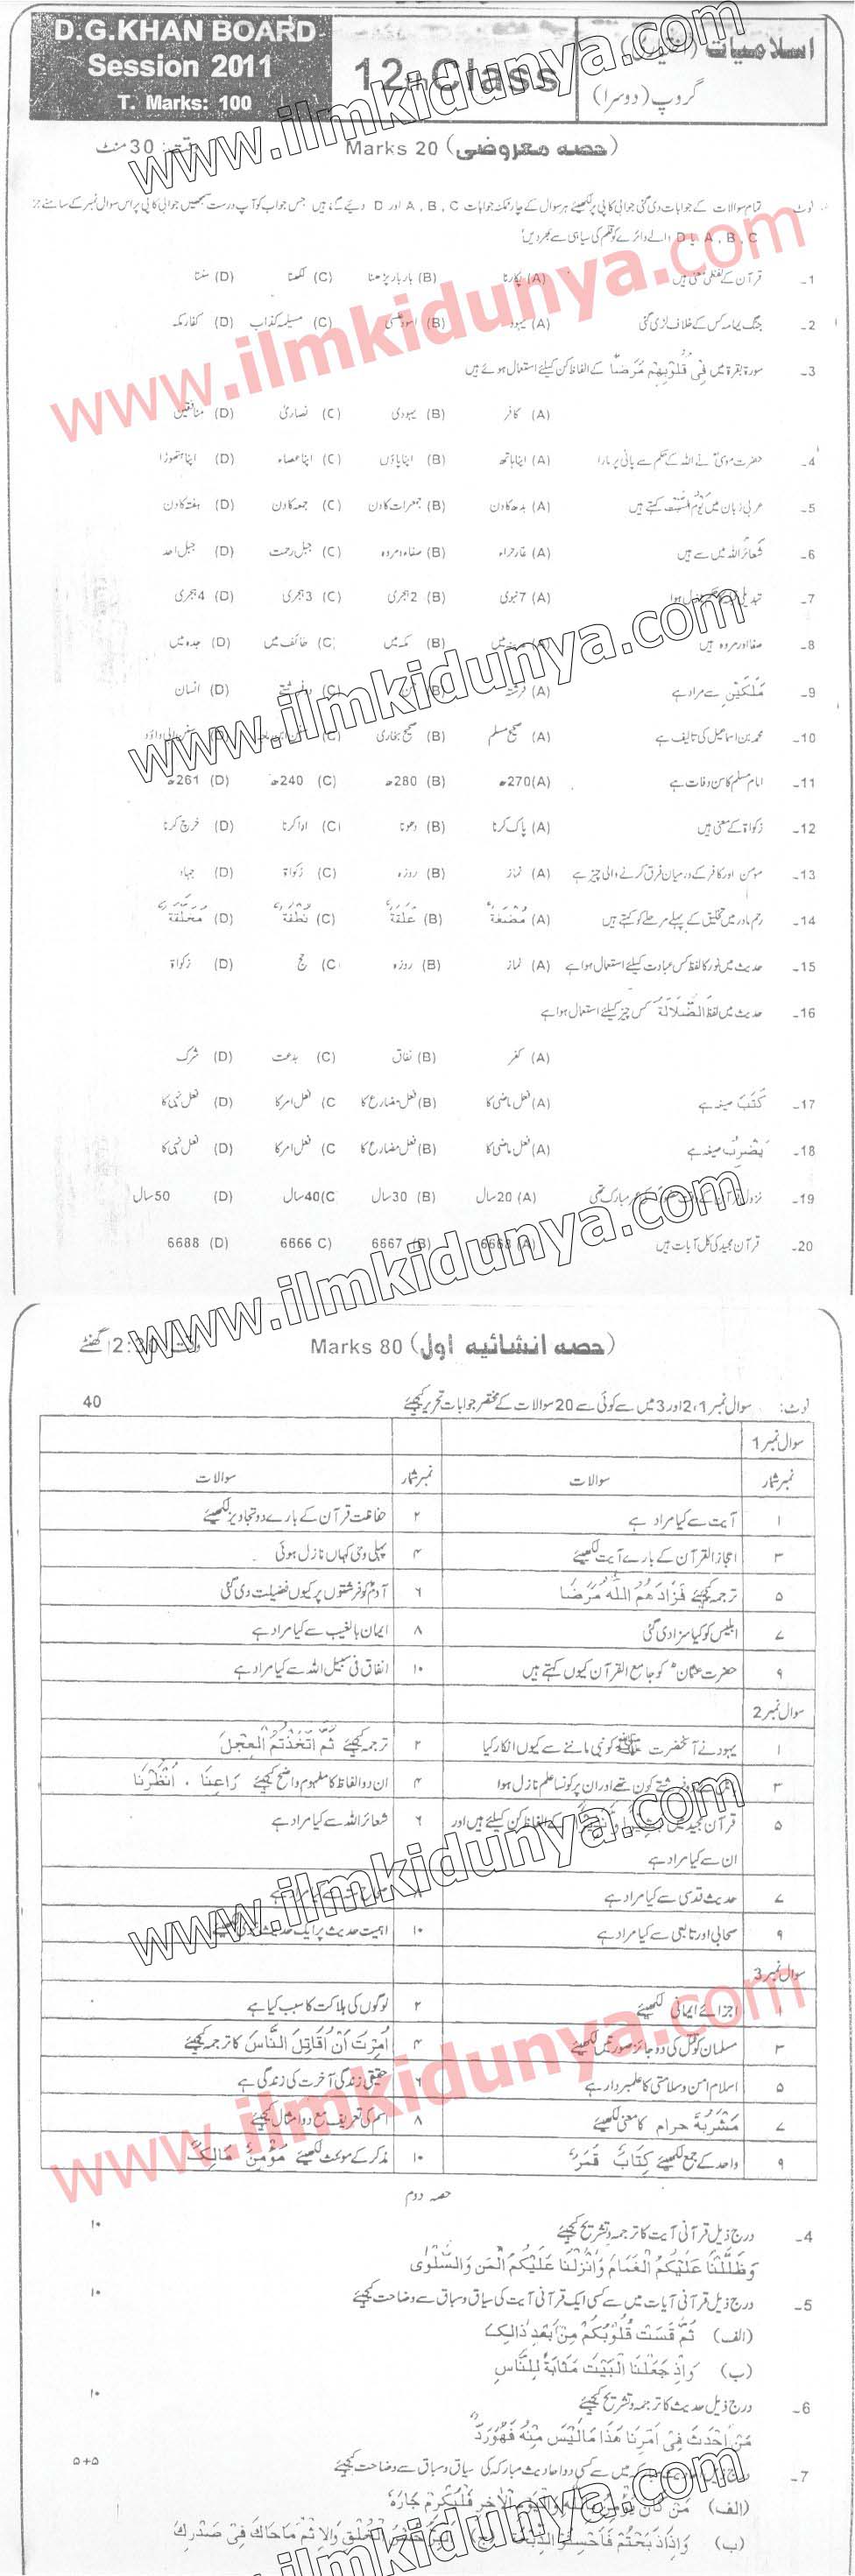 D.G.KHAN BOARD
Session 2011
T. Marks: 100
12th Class
اسلامیات
گروپ (دوسرا)
(حصہ معروضی) Marks 20 وقت: 30 منٹ
نوٹ تمام سوالات کے جوابات دی گئی جوابی کاپی پر لکھیئے ہر سوال کے چار ممکنہ جوابات A , B , C اور D دیئے گئے ہیں جس جواب کو آپ درست سمجھیں جوابی کاپی پر اس سوال نمبر کے سامنے
A , B , C یا D والے دائرے کو قلم کی سیاہی سے بھر دیں
1۔ قرآن کے لفظی معنی ہیں (A) پکارنا (B) بار بار پڑھنا (C) لکھنا (D) سننا
2۔ جنگ یمامہ کس کے خلاف لڑی گئی (A) یہود (B) اسود عنسی (C) مسیلمہ کذاب (D) کفار مکہ
3۔ سورۃ بقرۃ میں فِی قُلُوبِهِم مَرَضاً کے الفاظ کن کیلئے استعمال ہوئے ہیں
(A) کافر (B) یہودی (C) نصاریٰ (D) منافقین
4۔ حضرت موسیٰ نے اللہ کے حکم سے پانی پر مارا (A) اپنا ہاتھ (B) اپنا پاؤں (C) اپنا عصاء (D) اپنا ہتھوڑا
5۔ عربی زبان میں یَوْمُ السَّبْت کہتے ہیں (A) بدھ کا دن (B) جمعرات کا دن (C) جمعہ کا دن (D) ہفتہ کا دن
6۔ شعائر اللہ میں سے ہیں (A) غار حراء (B) صفاء و مروہ (C) جبل رحمت (D) جبل احد
7۔ تبدیلی ہوا (A) 7 نبوی (B) 2 ہجری (C) 3 ہجری (D) 4 ہجری
8۔ صفا اور مروہ ہیں (A) مدینہ میں (B) مکہ میں (C) طائف میں (D) جدہ میں
9۔ مَلَکَیْنِ سے مراد ہے (A) فرشتہ (B) جن (C) دو فرشتے (D) انسان
10۔ محمد بن اسماعیل کی تالیف ہے (A) صحیح مسلم (B) صحیح بخاری (C) سنن ابن ماجہ (D) سنن ابی داؤد
11۔ امام مسلم کا سن وفات ہے (A) 270ھ (B) 280ھ (C) 240ھ (D) 261ھ
12۔ زکواۃ کے معنی ہیں (A) پاک کرنا (B) دھونا (C) ادا کرنا (D) خرچ کرنا
13۔ مومن اور کافر کے درمیان فرق کرنے والی چیز ہے (A) نماز (B) روزہ (C) زکواۃ (D) جہاد
14۔ رحم مادر میں تخلیق کے پہلے مرحلے کو کہتے ہیں (A) مُضْغَة (B) عَلَقَة (C) نُطْفَة (D) مُخَلَّقَة
15۔ حدیث میں نور کا لفظ کس عبادت کیلئے استعمال ہوا ہے (A) نماز (B) روزہ (C) حج (D) زکواۃ
16۔ حدیث میں لفظ الضَّلَالَة کس چیز کیلئے استعمال ہوا ہے
(A) کفر (B) نفاق (C) بدعت (D) شرک
17۔ کَتَبَ صیغہ ہے (A) فعل ماضی کا (B) فعل مضارع کا (C فعل امر کا (D) فعل نہی کا
18۔ یَضْرِبُ صیغہ ہے (A) فعل ماضی کا (B) فعل مضارع کا (C فعل امر کا (D) فعل نہی کا
19۔ نزول قرآن کے وقت عمر مبارک تھی (A) 20 سال (B) 30 سال (C) 40 سال (D) 50 سال
20۔ قرآن مجید کی کل آیات ہیں (A) 6668 (B) 6667 (C 6666 (D) 6688
(حصہ انشائیہ اول) Marks 80 وقت: 2:30 گھنٹے
نوٹ: سوال نمبر 1، 2 اور 3 میں سے کوئی سے 20 سوالات کے مختصر جوابات تحریر کیجئے 40
سوال نمبر 1
نمبر شمار سوالات نمبر شمار سوالات
۱ آیت سے کیا مراد ہے ۲ حفاظت قرآن کے بارے دو تجاویز لکھیئے
۳ اعجاز القرآن کے بارے آیت لکھیئے ۴ پہلی وحی کہاں نازل ہوئی
۵ ترجمہ کیجئے فَزَادَهُمُ اللّٰهُ مَرَضًا ۶ آدم کو فرشتوں پر کیوں فضیلت دی گئی
۷ ابلیس کو کیا سزا دی گئی ۸ ایمان بالغیب سے کیا مراد ہے
۹ حضرت عثمان کو جامع القرآن کیوں کہتے ہیں ۱۰ انفاق فی سبیل اللہ سے کیا مراد ہے
سوال نمبر 2
۱ یہود نے آنحضرت ﷺ کو نبی ماننے سے کیوں انکار کیا ۲ ترجمہ کیجئے ثُمَّ اتَّخَذْتُمُ الْعِجْلَ
۳ فرشتے کون تھے اور ان پر کونسا علم نازل ہوا ۴ ان دو الفاظ کا مفہوم واضح کیجئے رَاعِنَا ، اُنْظُرْنَا
۵ قرآن مجید میں بَشِیْرًا وَّنَذِیْرًا کے الفاظ کن کیلئے ہیں اور ان سے کیا مراد ہے ۶ شعائر اللہ سے کیا مراد ہے
۷ حدیث قدسی سے کیا مراد ہے ۸ سے کیا مراد ہے
۹ صحابی اور تابعی سے کیا مراد ہے ۱۰ اہمیت حدیث پر ایک حدیث لکھیئے
سوال نمبر 3
۱ اجزائے ایمانی لکھیئے ۲ لوگوں کی ہلاکت کا سبب کیا ہے
۳ مسلمان کو قتل کی دو جائز صورتیں لکھیئے ۴ اُمِرْتُ اَنْ اُقَاتِلَ النَّاسَ کا ترجمہ کیجئے
۵ اسلام امن و سلامتی کا علمبردار ہے ۶ حقیقی زندگی آخرت کی زندگی ہے
۷ مَشْرَبَهُ حرام کا معنی لکھیئے ۸ اسم کی تعریف مع دو امثال کیجئے
۹ واحد کے جمع لکھیئے کِتَابٌ قَمَرٌ ۱۰ مذکر کے مونث لکھیئے مُؤْمِنٌ مَالِکٌ
حصہ دوم
4۔ درج ذیل قرآنی آیت کا ترجمہ و تشریح کیجئے ۱۰
وَظَلَّلْنَا عَلَیْکُمُ الْغَمَامَ وَاَنْزَلْنَا عَلَیْکُمُ الْمَنَّ وَالسَّلْوٰی
5۔ درج ذیل قرآنی آیات میں سے کسی ایک قرآنی آیت کی سیاق و سباق سے وضاحت کیجئے ۱۰
(الف) ثُمَّ قَسَتْ قُلُوْبُکُمْ مِنْ بَعْدِ ذَالِکَ
(ب) وَاِذْ جَعَلْنَا الْبَیْتَ مَثَابَةً لِلنَّاسِ
6۔ درج ذیل حدیث کا ترجمہ و تشریح کیجئے ۱۰
مَنْ اَحْدَثَ فِی اَمْرِنَا هٰذَا مَالَیْسَ مِنْهُ فَهُوَرَدٌّ
7۔ درج ذیل احادیث مبارکہ میں سے کسی دو احادیث مبارکہ کی سیاق و سباق سے وضاحت کیجئے ۵+۵
(الف) مَنْ کَانَ یُؤْمِنُ بِاللّٰهِ وَالْیَوْمِ الْاٰخِرِ فَلْیُکْرِمْ جَارَهٗ
(ب) وَاِذَا ذَبَحْتُمْ فَاَحْسِنُوا الذِّبْحَةَ (ج) اَلْبِرُّ حُسْنُ الْخُلُقِ وَالْاِثْمُ مَاحَاکَ فِی صَدْرِکَ
www.ilmkidunya.com
www.ilmkidunya.com
www.ilmkidunya.com
www.ilmkidunya.com
www.ilmkidunya.com
www.ilmkidunya.com
www.ilmkidunya.com